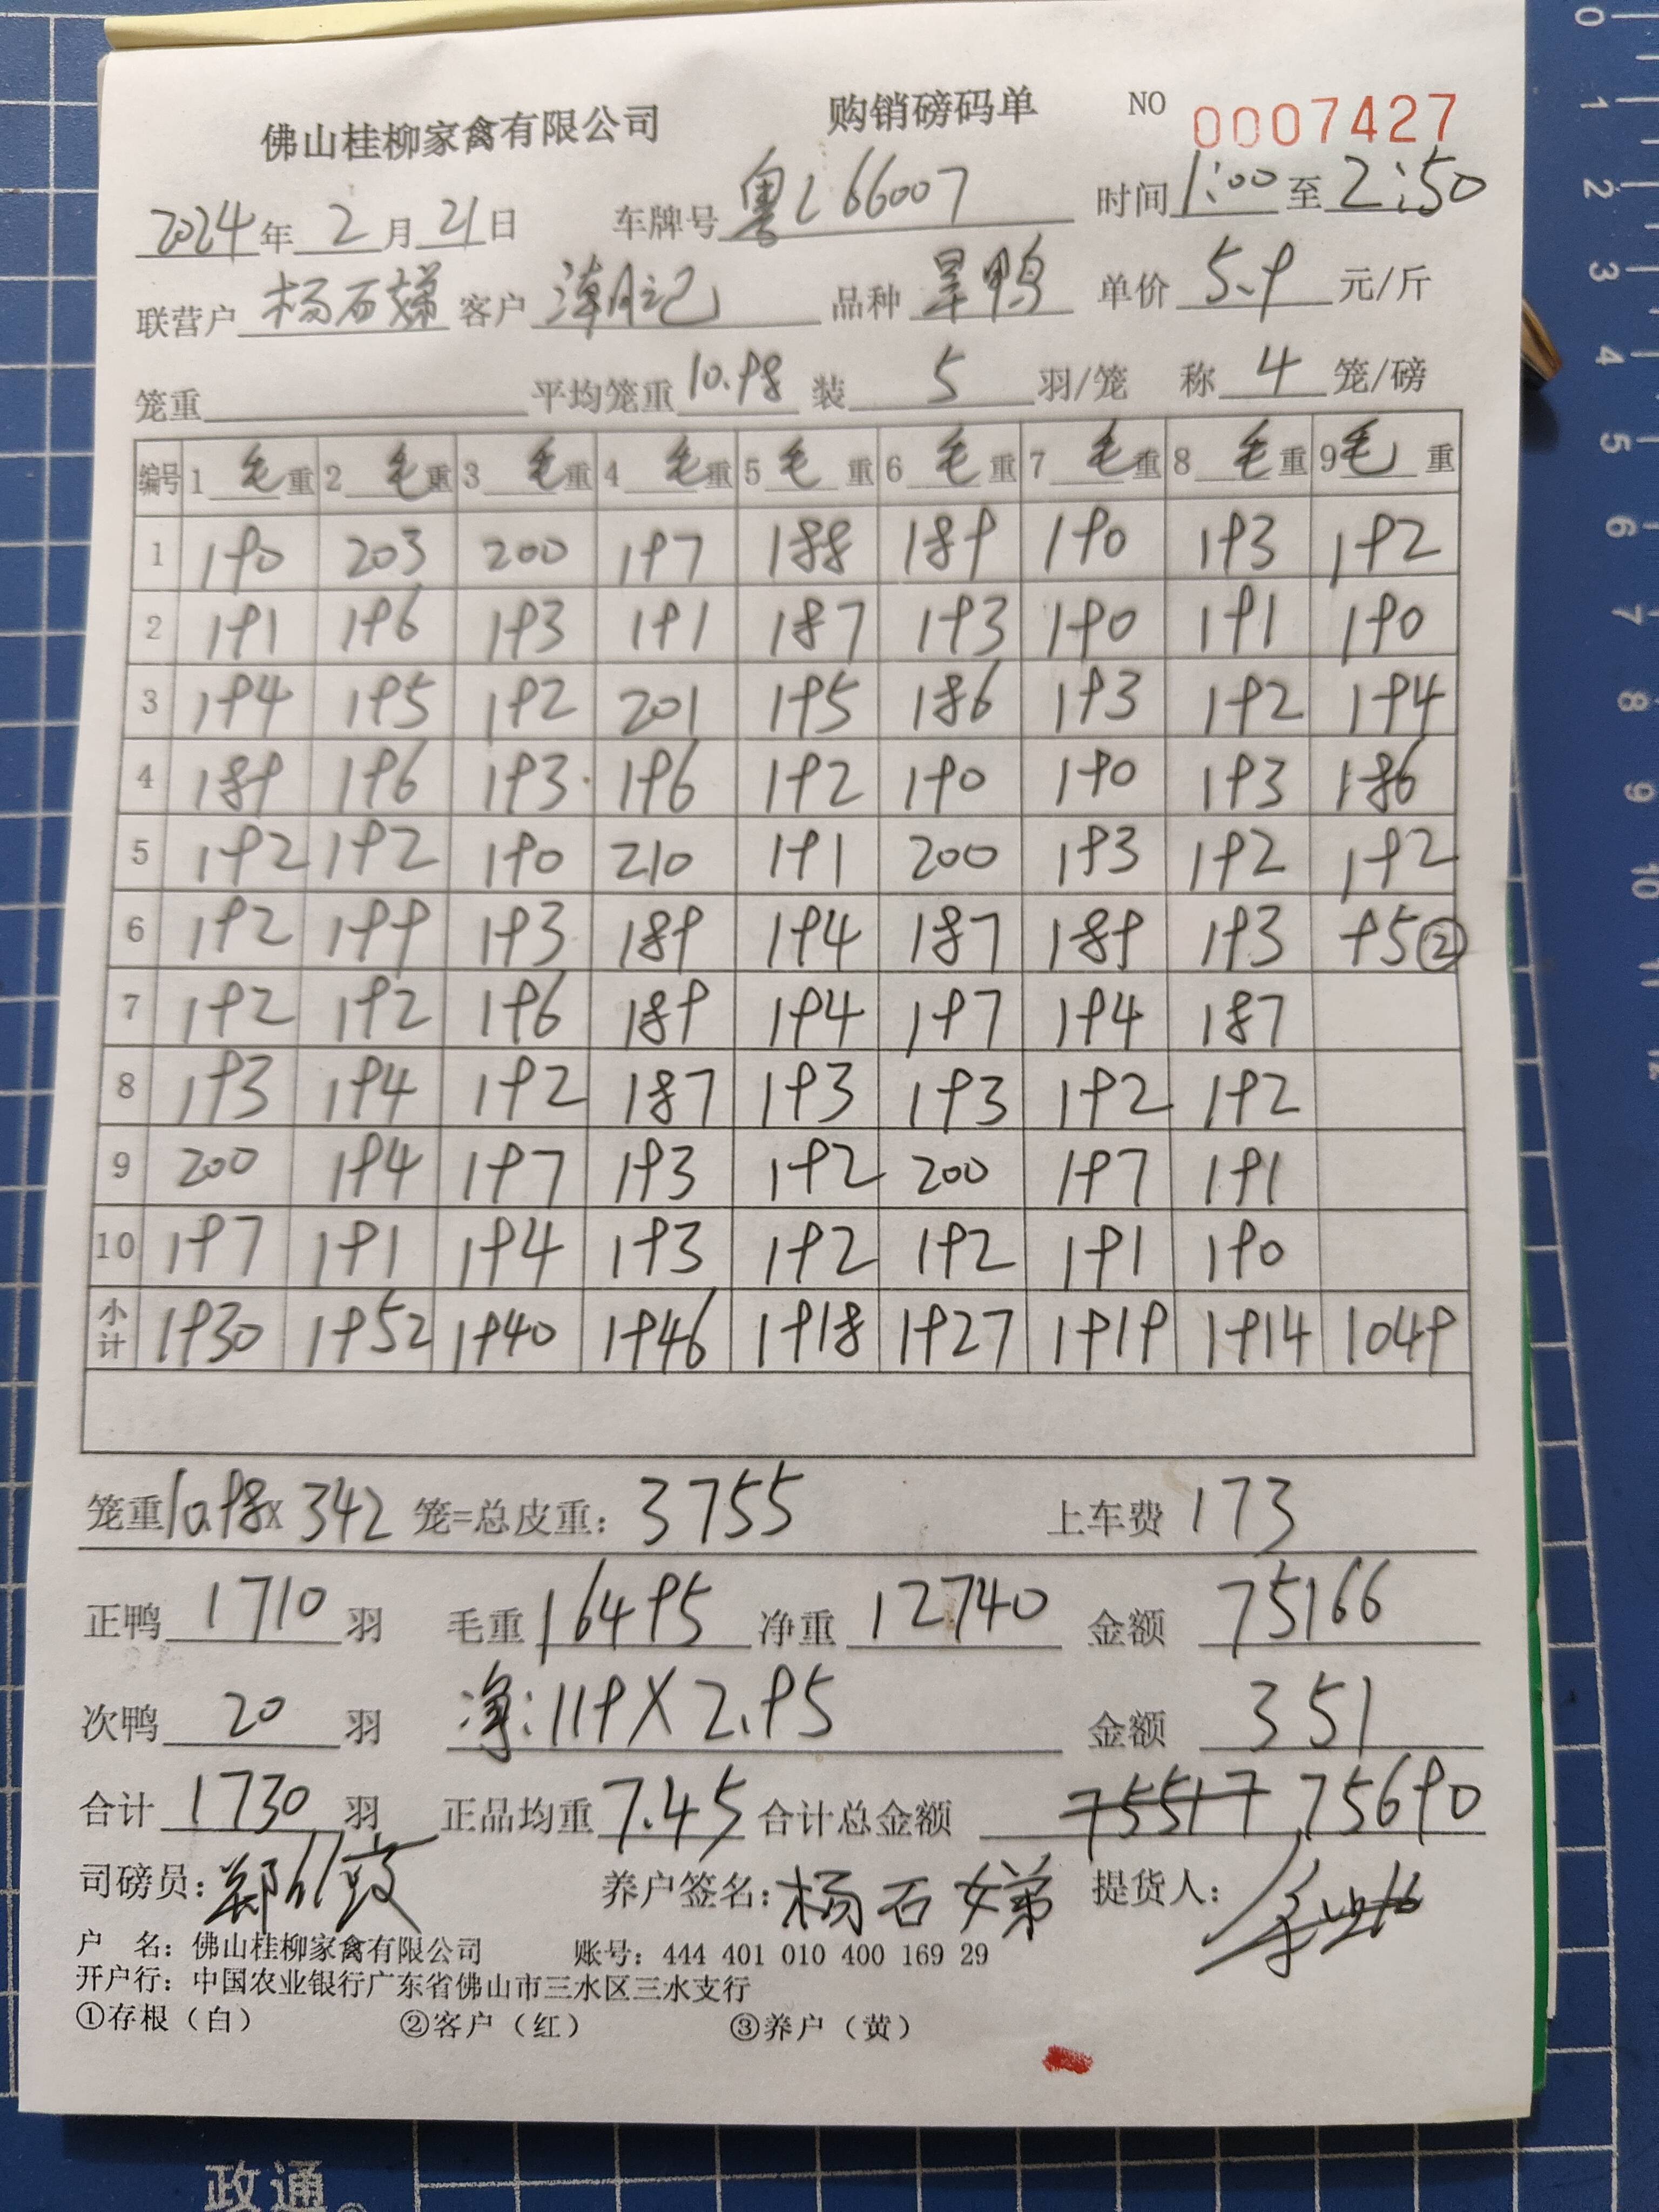 佛山桂柳家禽有限公司 购销磅码单 NO 0007427
2024年 2月 21日 车牌号 粤L66007 时间 1:00 至 2:50
联营户 杨石娣 客户 潮记 品种 旱鸭 单价 5.9 元/斤
笼重 平均笼重 10.98 装 5 羽/笼 称 4 笼/磅
编号 1 毛重 2 毛重 3 毛重 4 毛重 5 毛重 6 毛重 7 毛重 8 毛重 9 毛重
1 190 203 200 197 188 189 190 193 192
2 191 196 193 191 187 193 190 191 190
3 194 195 192 201 195 186 193 192 194
4 189 196 193 196 192 190 190 193 186
5 192 192 190 210 191 200 193 192 192
6 192 199 193 189 194 187 189 193 95②
7 192 192 196 189 194 197 194 187
8 193 194 192 187 193 193 192 192
9 200 194 197 193 192 200 197 191
10 197 191 194 193 192 192 191 190
小计 1930 1952 1940 1946 1918 1927 1919 1914 1049
笼重 10.98 x 342 笼=总皮重: 3755 上车费 173
正鸭 1710 羽 毛重 16495 净重 12740 金额 75166
次鸭 20 羽 净:119X2.95 金额 351
合计 1730 羽 正品均重 7.45 合计总金额 75517 75690
司磅员: 养户签名: 杨石娣 提货人:
户 名: 佛山桂柳家禽有限公司 账号: 444 401 010 400 169 29
开户行: 中国农业银行广东省佛山市三水区三水支行
①存根（白） ②客户（红） ③养户（黄）
政通。
0 1 2 3 4 5 6 7 8 9 10 11 12